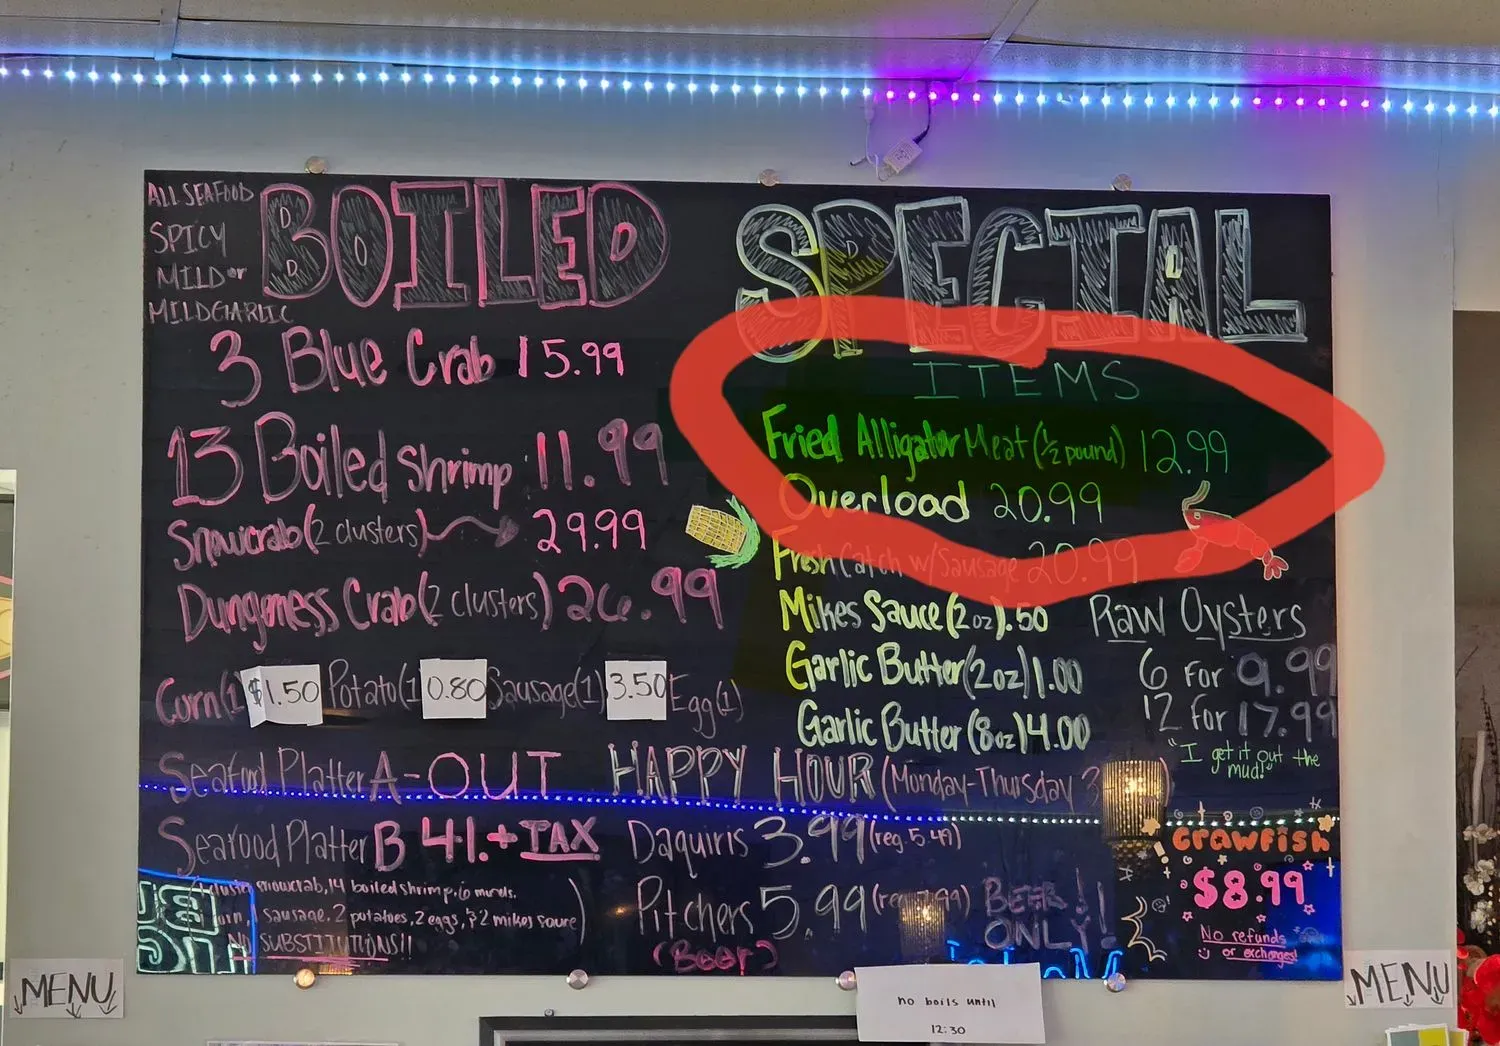 ALL SEAFOOD
SPICY
MILD or
MILD GARLIC
BOILED
3 Blue Crab 15.99
13 Boiled Shrimp 11.99
Snowcrab (2 clusters) 29.99
Dungeness Crab (2 clusters) 26.99
Corn (1) $1.50 Potato (1 0.80 Sausage (1) 3.50 Egg (1)
Seafood Platter A-OUT
Seafood Platter B 41.+TAX
cluster snowcrab, 14 boiled shrimp,
corn, 1 sausage, 2 potatoes, 2 eggs, & 2 mikes sauce)
NO SUBSTITUTIONS!!
SPECIAL
ITEMS
Fried Alligator Meat (1/2 pound) 12.99
Overload 20.99
Fresh Catch w/Sausage 20.99
Mikes Sauce (2oz) .50
Garlic Butter (2oz) 1.00
Garlic Butter (8oz) 4.00
Raw Oysters
6 For 9.99
12 For 17.99
"I get it out the
mud!"
HAPPY HOUR (Monday-Thursday 3
Daquiris 3.99 (reg. 5.49)
Pitchers 5.99
(Beer)
BEER
ONLY!!
Crawfish
$8.99
No refunds
or exchanges!
MENU
MENU
no boils until
12:30